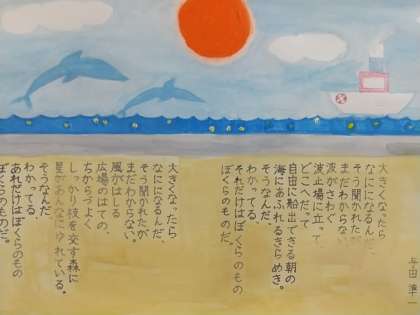 大きくなったら
なにになるんだ、
そう聞かれたが
まだわからない。
波がさわぐ
波止場に立って、
どこへだって
自由に船出できる朝の
海にあふれるきらめき。
そうなんだ、
わかってる、
それだけはぼくらのもの
だ。
大きくなったら
なにになるんだ、
そう聞かれたが
まだわからない。
風がはしる
広場のはての、
ちからづよく
しっかり枝を交す森に
星があんなにゆれている。
そうなんだ
わかってる、
あれだけはぼくらのもの
ぼくらのものだ。
与田 準一